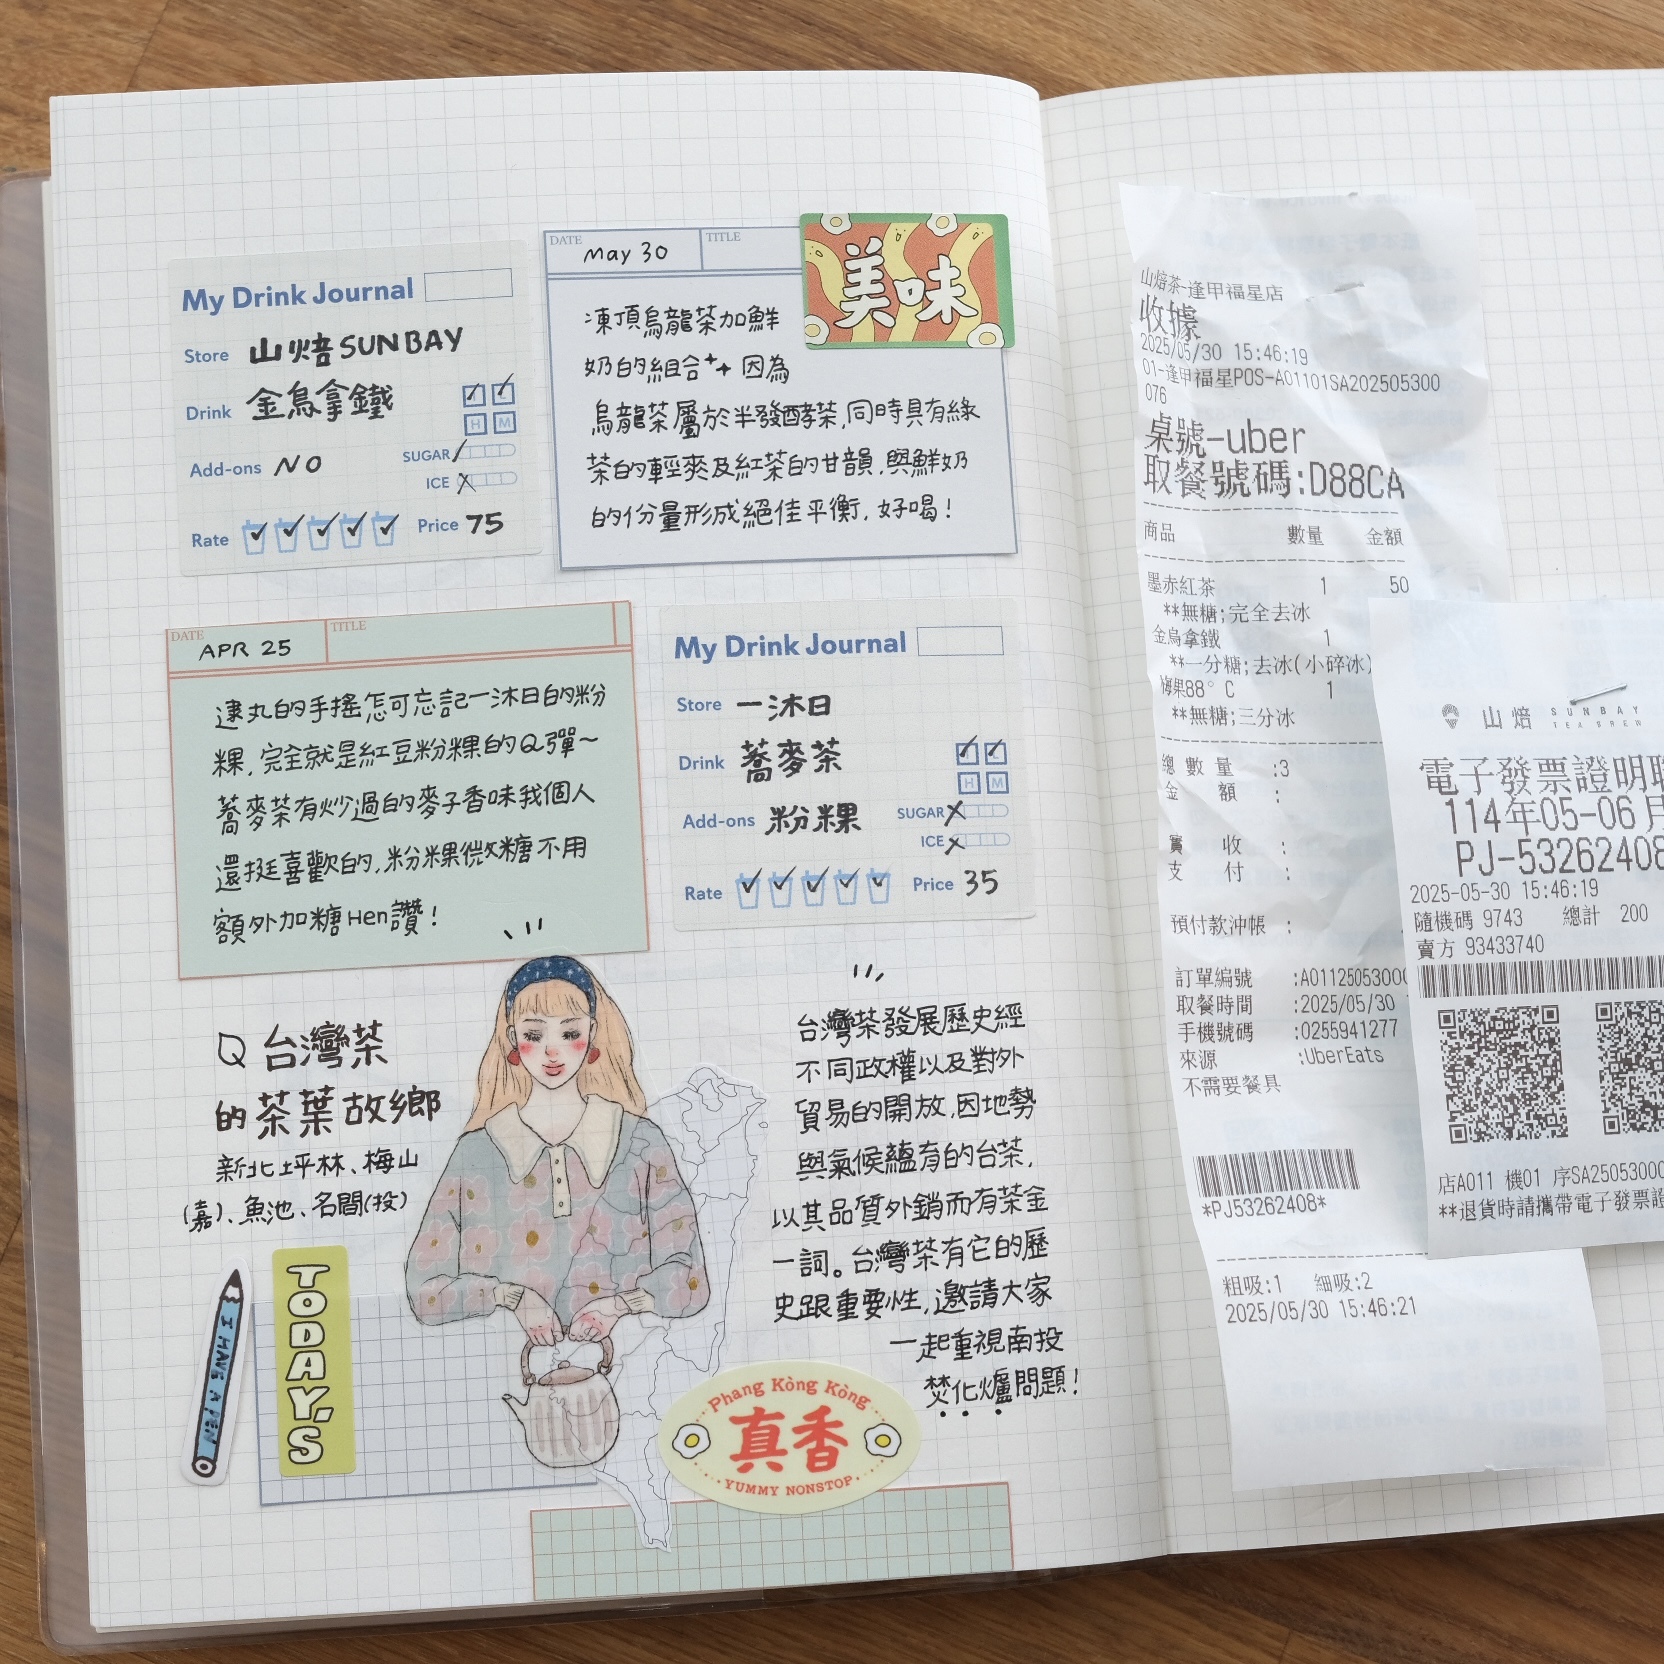 My Drink Journal
Store 山焙 SUNBAY
Drink 金烏拿鐵
H M
Add-ons NO
SUGAR
ICE
Rate
Price 75
DATE May 30 TITLE
美味
凍頂烏龍茶加鮮
奶的組合 因為
烏龍茶屬於半發酵茶,同時具有綠
茶的輕爽及紅茶的甘韻,與鮮奶
的份量形成絕佳平衡,好喝!
DATE APR 25 TITLE
逮丸的手搖怎可忘記一沐日的粉
粿,完全就是紅豆粉粿的Q彈~
蕎麥茶有炒過的麥子香味我個人
還挺喜歡的,粉粿微糖不用
額外加糖Hen讚!
My Drink Journal
Store 一沐日
Drink 蕎麥茶
H M
Add-ons 粉粿
SUGAR
ICE
Rate
Price 35
Q 台灣茶
的茶葉故鄉
新北坪林、梅山
(嘉)、魚池、名間(投)
台灣茶發展歷史經
不同政權以及對外
貿易的開放,因地勢
與氣候蘊育的台茶,
以其品質外銷而有茶金
一詞。台灣茶有它的歷
史跟重要性,邀請大家
一起重視南投
焚化爐問題!
I HAVE A PEN
TODAY'S
Phang Kòng Kòng
真香
YUMMY NONSTOP
山焙茶-逢甲福星店
收據
2025/05/30 15:46:19
01-逢甲福星POS-A01101SA202505300
076
桌號-uber
取餐號碼:D88CA
商品 數量 金額
墨赤紅茶 1 50
**無糖;完全去冰
金烏拿鐵 1
**一分糖;去冰(小碎冰)
梅果88°C 1
**無糖;三分冰
總數量 :3
金額 :
實收 :
支付 :
預付款沖帳 :
訂單編號 :A0112505300
取餐時間 :2025/05/30
手機號碼 :0255941277
來源 :UberEats
不需要餐具
*PJ53262408*
粗吸:1 細吸:2
2025/05/30 15:46:21
山焙 SUNBAY
TEA BREW
電子發票證明聯
114年05-06月
PJ-53262408
2025-05-30 15:46:19
隨機碼 9743 總計 200
賣方 93433740
店A011 機01 序SA25053000
**退貨時請攜帶電子發票證